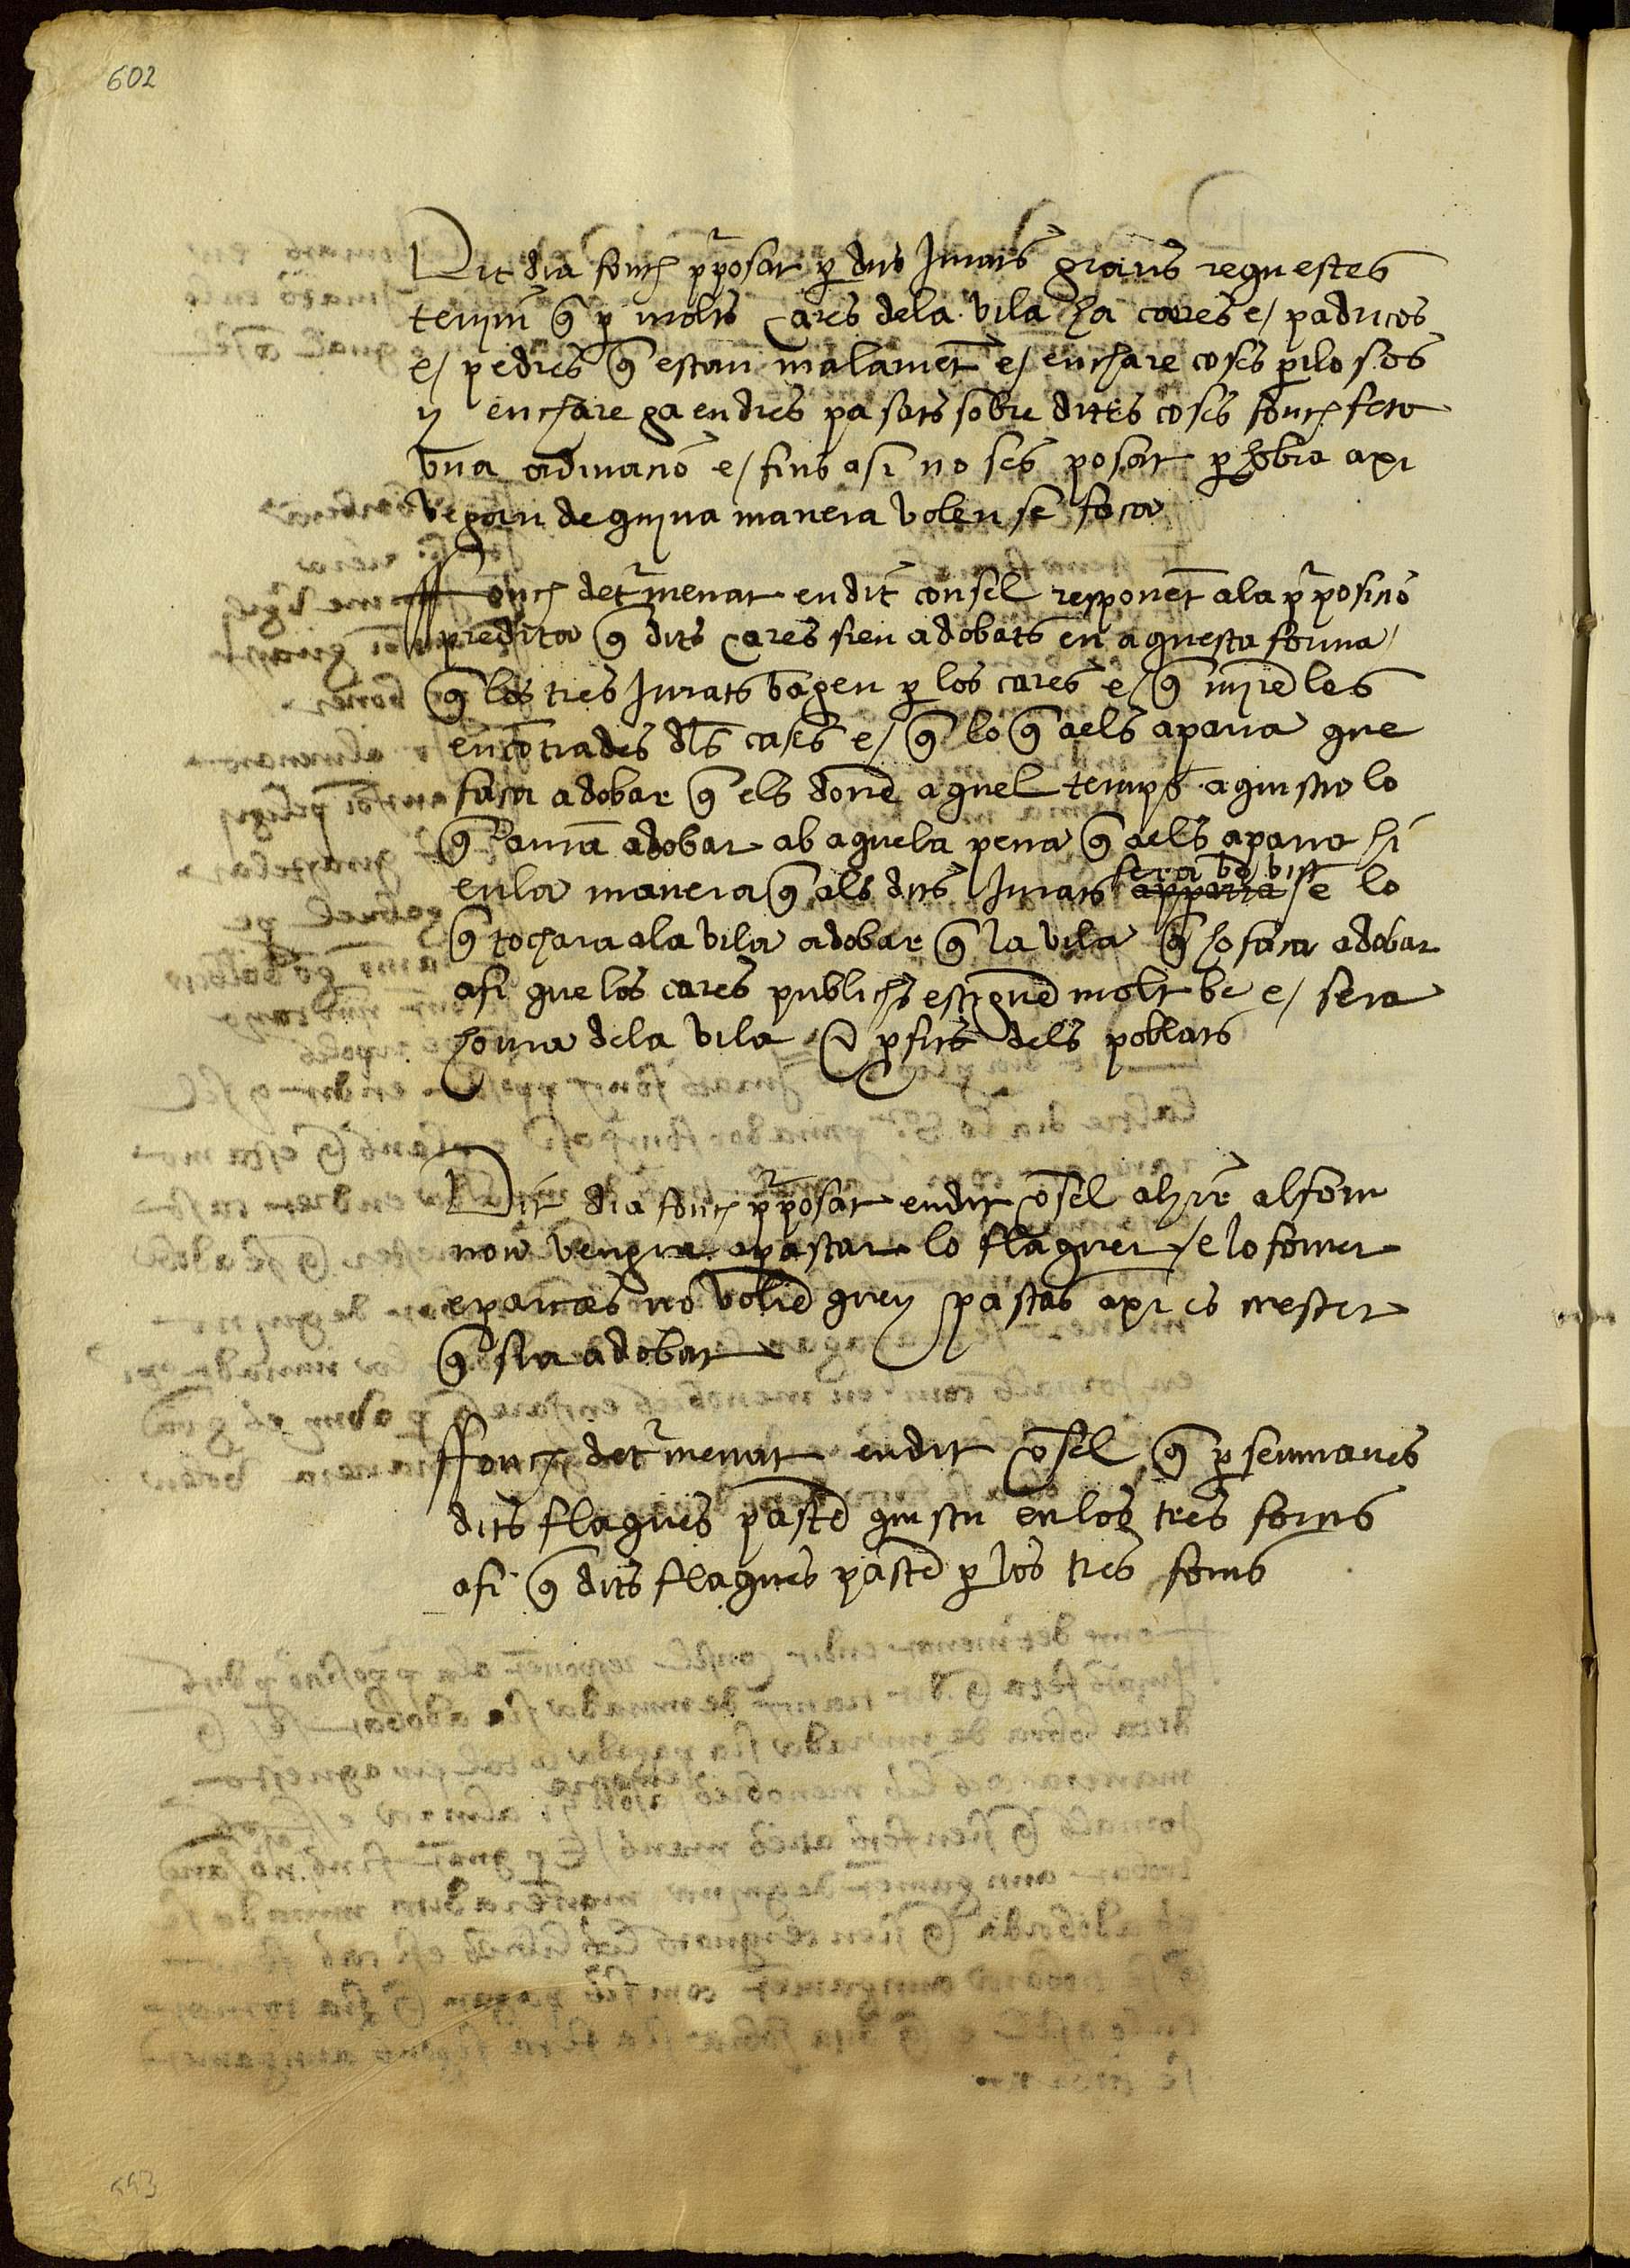 602
Dit dia fonch pposat p dits Jurats grans requestes
tenim q p molts cares dela vila ha cares e/ padrices
e/ pedres q estan malament e/ enchare coses perilosses
y enchare ga en dies pasats sobre dites coses fonch feta
vna ordinasio e/ fins asi no ses posat p hobra axi
vegan de quina manera volen se fasa
Ffonch detrmenat en dit consel responent ala pposisio
predita q dits cares sien adobats en aquesta forma
q los tres Jurats vagen p los cares e/ q miren les
encontrades dls cases e/ q lo q aels aparra que
fasa adobar q els donen aquel temps aquistio lo
q auran adobar ab aquela pena q aels aparra hi
enla manera q als dits Jurats sera be vist apparra / e lo
q tochara ala vila adobar q la vila q ho fasa adobar
asi que los cares publichs estiguen molt be e/ sera
honra dela vila & pfits dels poblats
Dit dia fonch pposat en dit cosel al forn
nou vengra apastar lo flaquer / e lo forner
e parroes no volen quey pastas axi es mester
q sia adobat
Ffonch detrmenat en dit cosel q p semmanes
dits flaques pasten en los tres forns
asi q dits flaques pasten p los tres forns
593